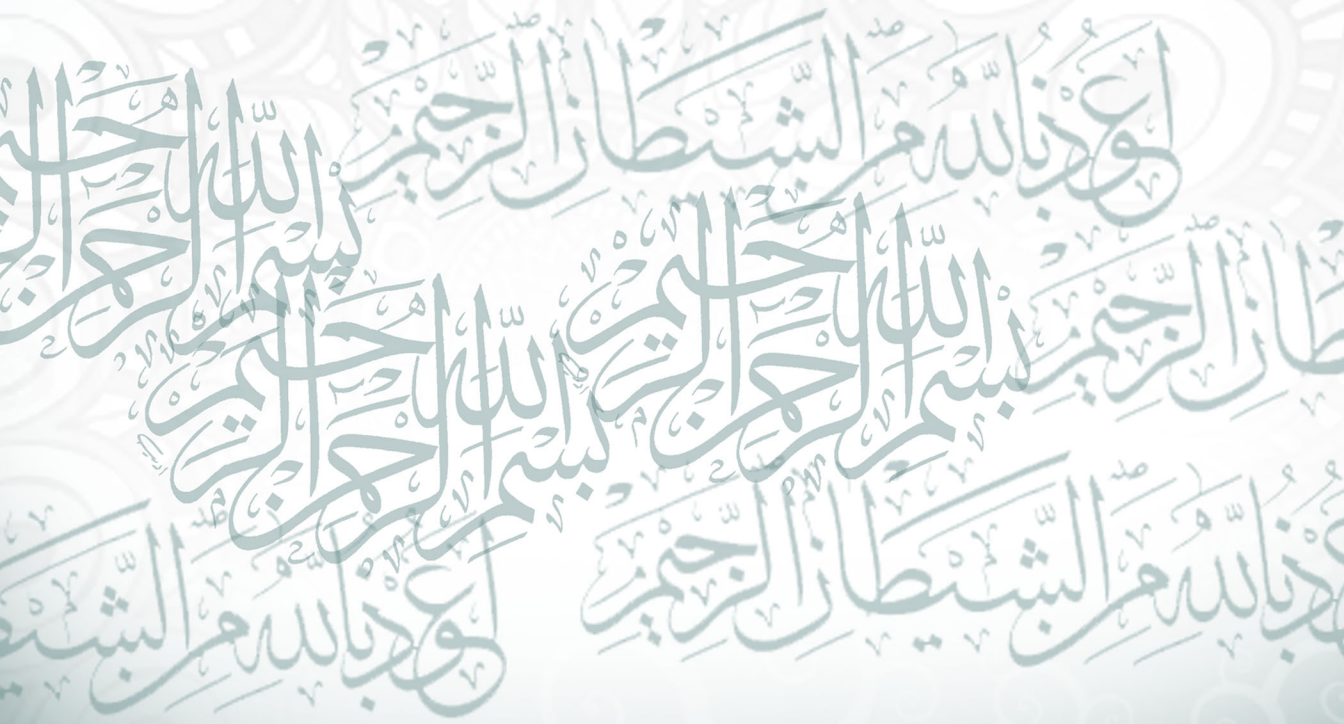 أعوذ بالله من الشيطان الرجيم
بسم الله الرحمن الرحيم
بسم الله الرحمن الرحيم
الرجيم
بسم الله الرحمن الرحيم
أعوذ بالله من الشيطان الرجيم
أعوذ بالله من